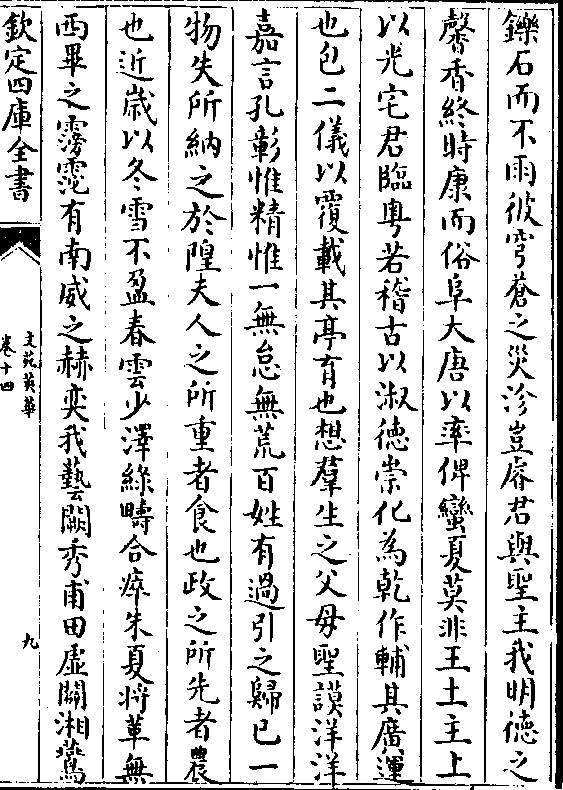 鑠石而不雨彼穹蒼之災沴豈睿君與聖主我明德之
馨香終時康而俗阜大唐以率俾蠻夏莫非王土主上
以光宅君臨粵若稽古以淑德崇化為乾作輔其廣運
也包二儀以覆載其亭育也想羣生之父母聖謨洋洋
嘉言孔彰惟精惟一無怠無荒百姓有過引之歸已一
物失所納之於隍夫人之所重者食也政之所先者農
也近嵗以冬雪不盈春雲少澤綠疇合瘁朱夏將革無
西畢之霶霑有南威之赫奕我藝闕秀甫田虛闢湘鷰
欽定四庫全書
文苑英華
卷十四
九